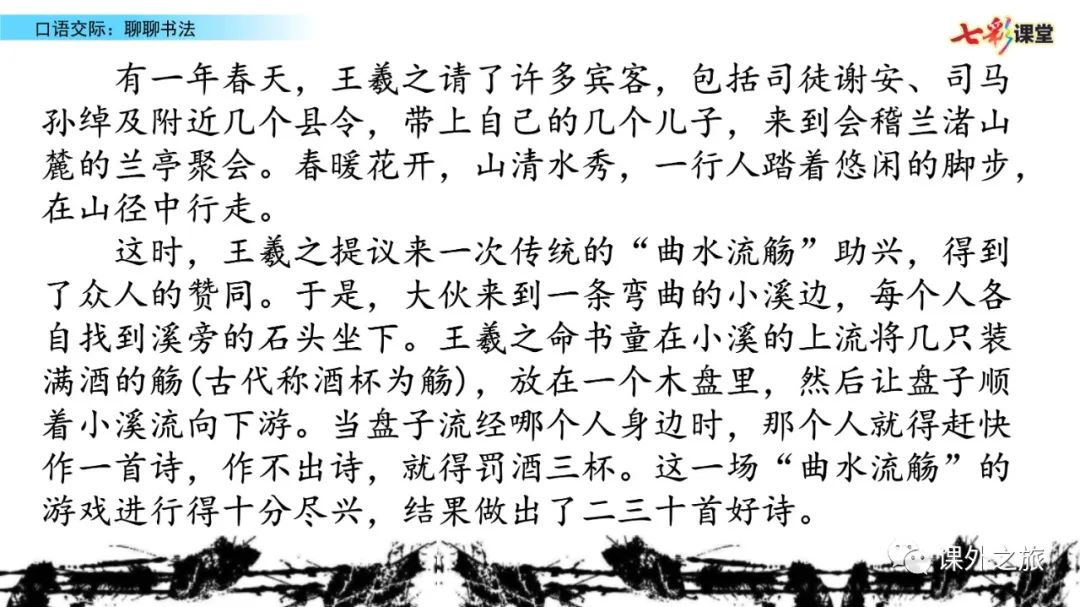 口语交际：聊聊书法
七彩课堂
有一年春天，王羲之请了许多宾客，包括司徒谢安、司马
孙绰及附近几个县令，带上自己的几个儿子，来到会稽兰渚山
麓的兰亭聚会。春暖花开，山清水秀，一行人踏着悠闲的脚步，
在山径中行走。
这时，王羲之提议来一次传统的“曲水流觞”助兴，得到
了众人的赞同。于是，大伙来到一条弯曲的小溪边，每个人各
自找到溪旁的石头坐下。王羲之命书童在小溪的上流将几只装
满酒的觞(古代称酒杯为觞)，放在一个木盘里，然后让盘子顺
着小溪流向下游。当盘子流经哪个人身边时，那个人就得赶快
作一首诗，作不出诗，就得罚酒三杯。这一场“曲水流觞”的
游戏进行得十分尽兴，结果做出了二三十首好诗。
课外之旅